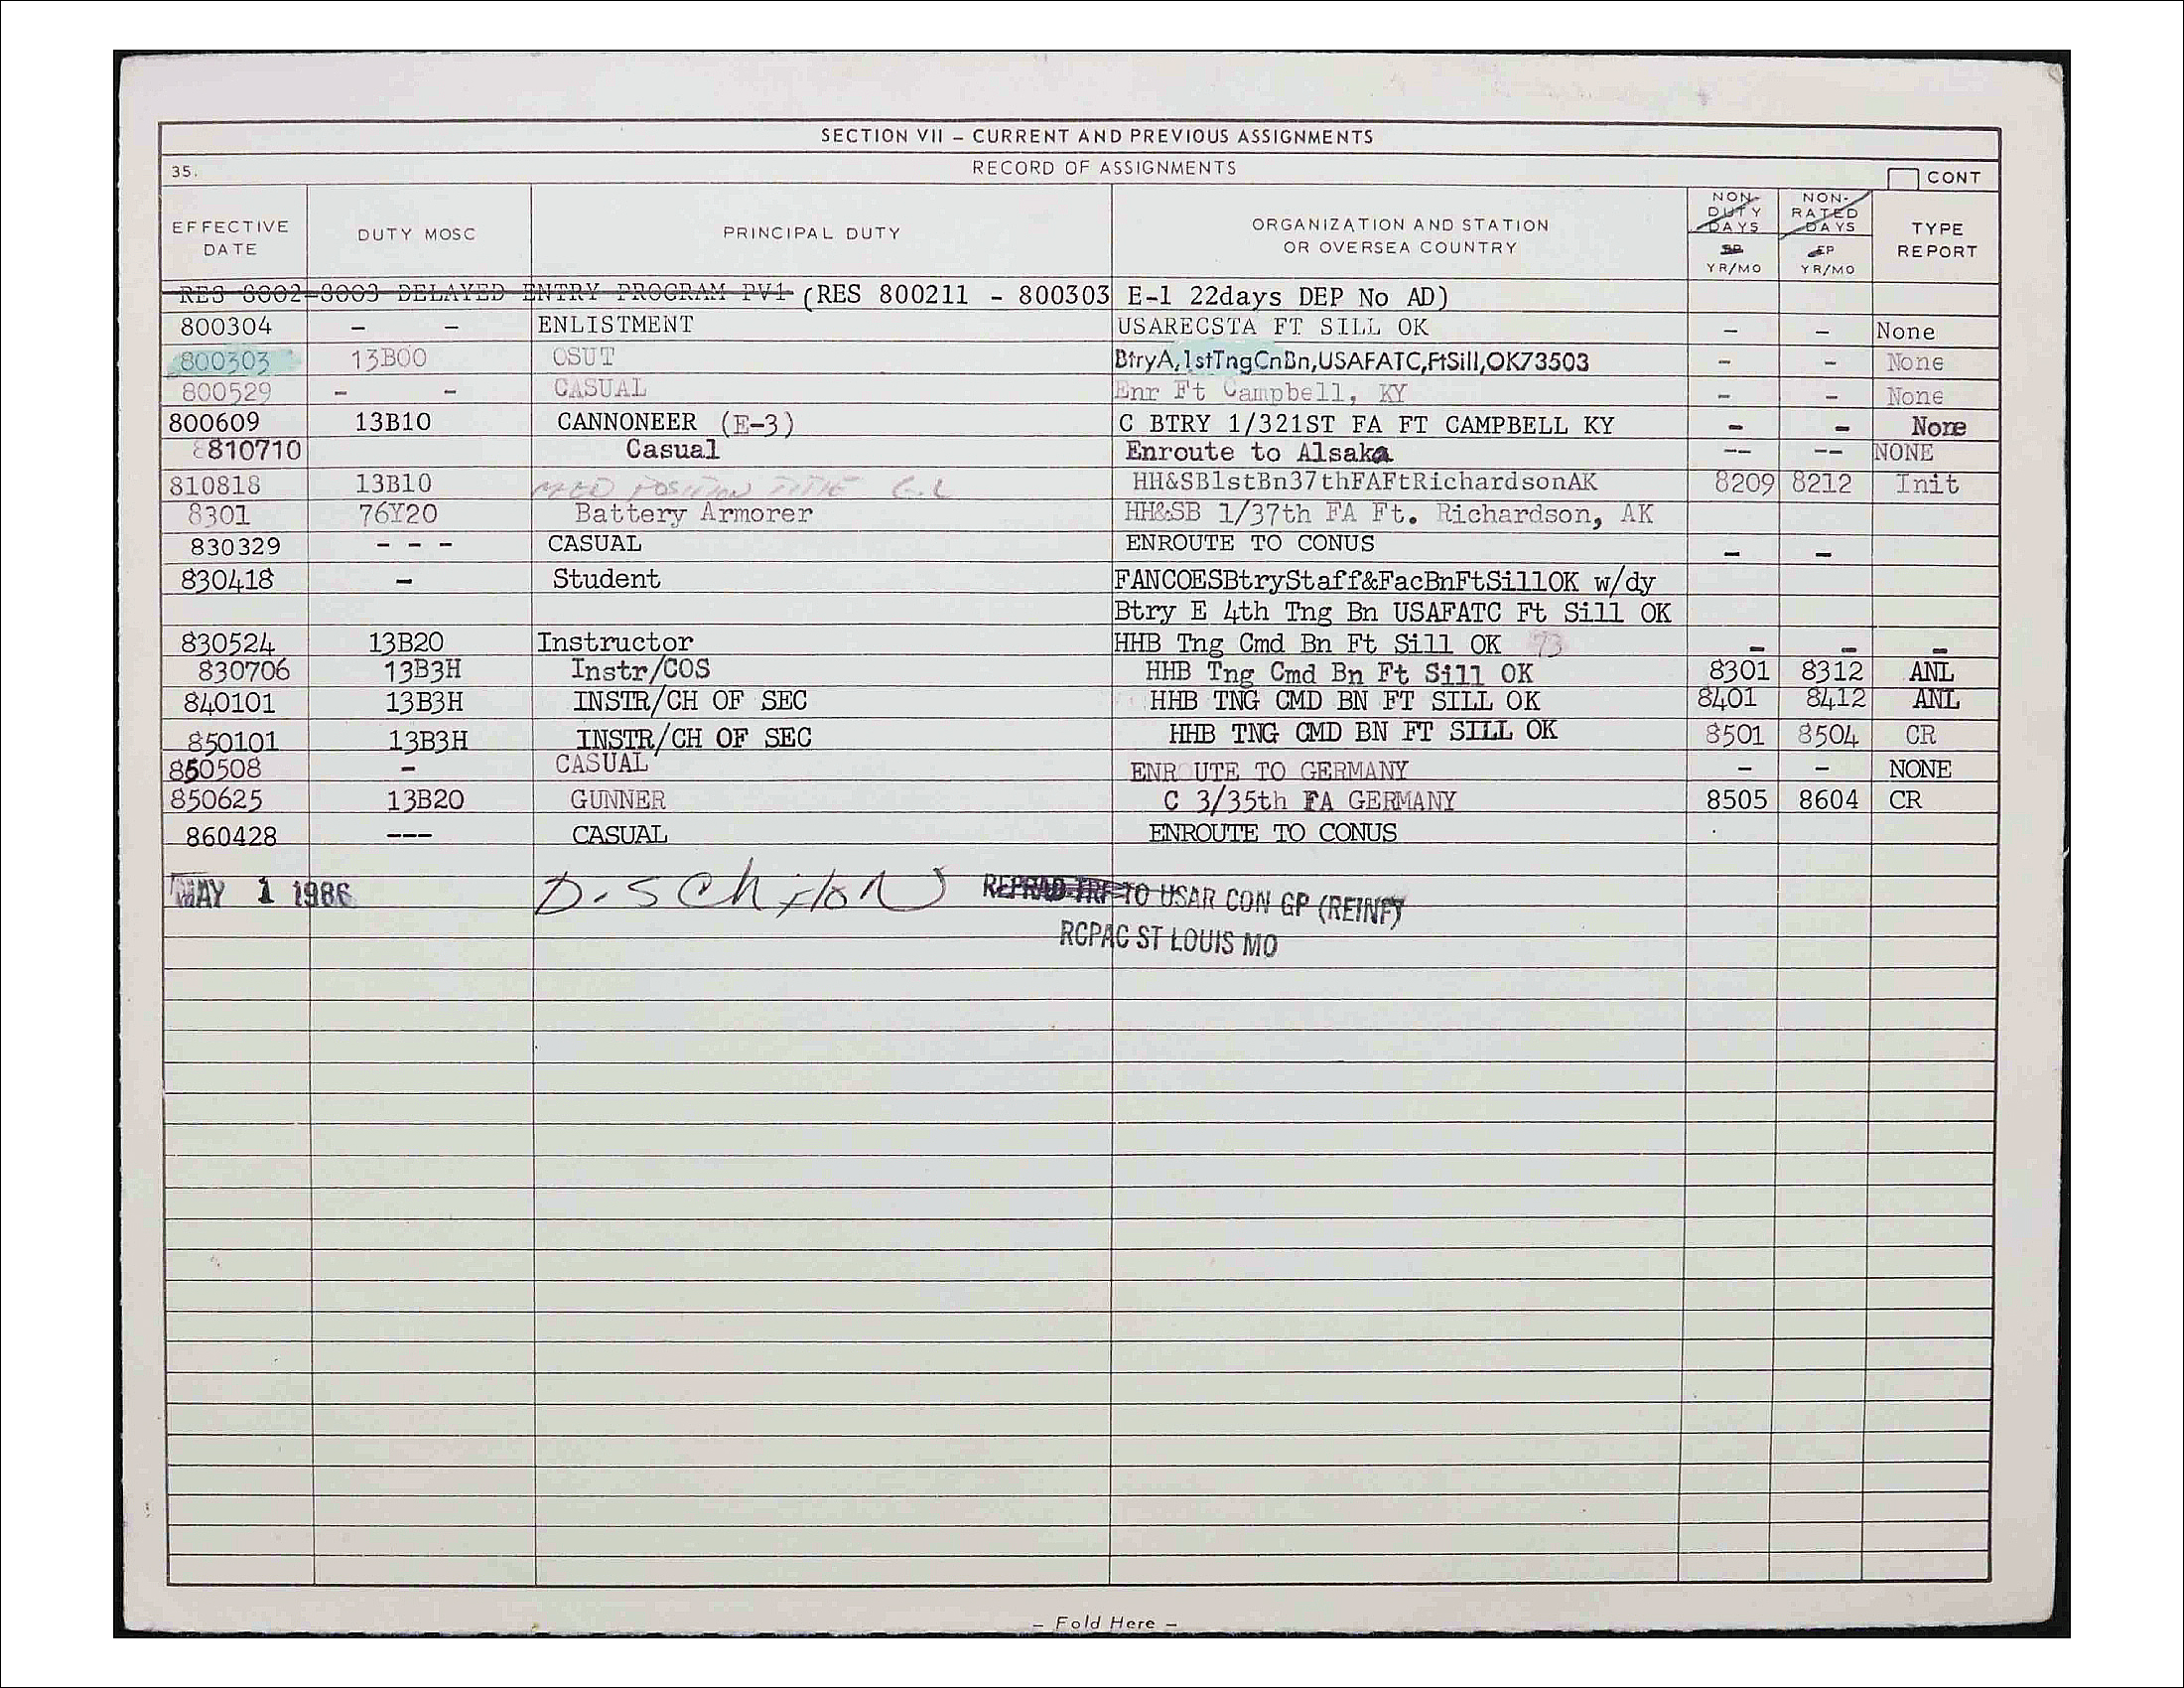 SECTION VII – CURRENT AND PREVIOUS ASSIGNMENTS
35. RECORD OF ASSIGNMENTS CONT
EFFECTIVE DATE DUTY MOSC PRINCIPAL DUTY ORGANIZATION AND STATION OR OVERSEA COUNTRY NON-DUTY DAYS YR/MO NON-RATED DAYS EP YR/MO TYPE REPORT
RES 8002-8003 DELAYED ENTRY PROGRAM PV1 (RES 800211 - 800303 E-1 22days DEP No AD)
800304 - - ENLISTMENT USARECSTA FT SILL OK - - None
800303 13B00 OSUT BtryA,1stTngCnBn,USAFATC,FtSill,OK73503 - - None
800529 - - CASUAL Enr Ft Campbell, KY - - None
800609 13B10 CANNONEER (E-3) C BTRY 1/321ST FA FT CAMPBELL KY - - None
810710 Casual Enroute to Alsaka -- -- NONE
810818 13B10 POSITION TITLE HH&SB1stBn37thFAFtRichardsonAK 8209 8212 Init
8301 76Y20 Battery Armorer HH&SB 1/37th FA Ft. Richardson, AK
830329 - - - CASUAL ENROUTE TO CONUS - -
830418 - Student FANCOESBtryStaff&FacBnFtSillOK w/dy
Btry E 4th Tng Bn USAFATC Ft Sill OK
830524 13B20 Instructor HHB Tng Cmd Bn Ft Sill OK 73 - - -
830706 13B3H Instr/COS HHB Tng Cmd Bn Ft Sill OK 8301 8312 ANL
840101 13B3H INSTR/CH OF SEC HHB TNG CMD BN FT SILL OK 8401 8412 ANL
850101 13B3H INSTR/CH OF SEC HHB TNG CMD BN FT SILL OK 8501 8504 CR
850508 - CASUAL ENR UTE TO GERMANY - - NONE
850625 13B20 GUNNER C 3/35th FA GERMANY 8505 8604 CR
860428 --- CASUAL ENROUTE TO CONUS
MAY 1 1986 REFRAD TRF TO USAR CON GP (REINF)
RCPAC ST LOUIS MO
– Fold Here –